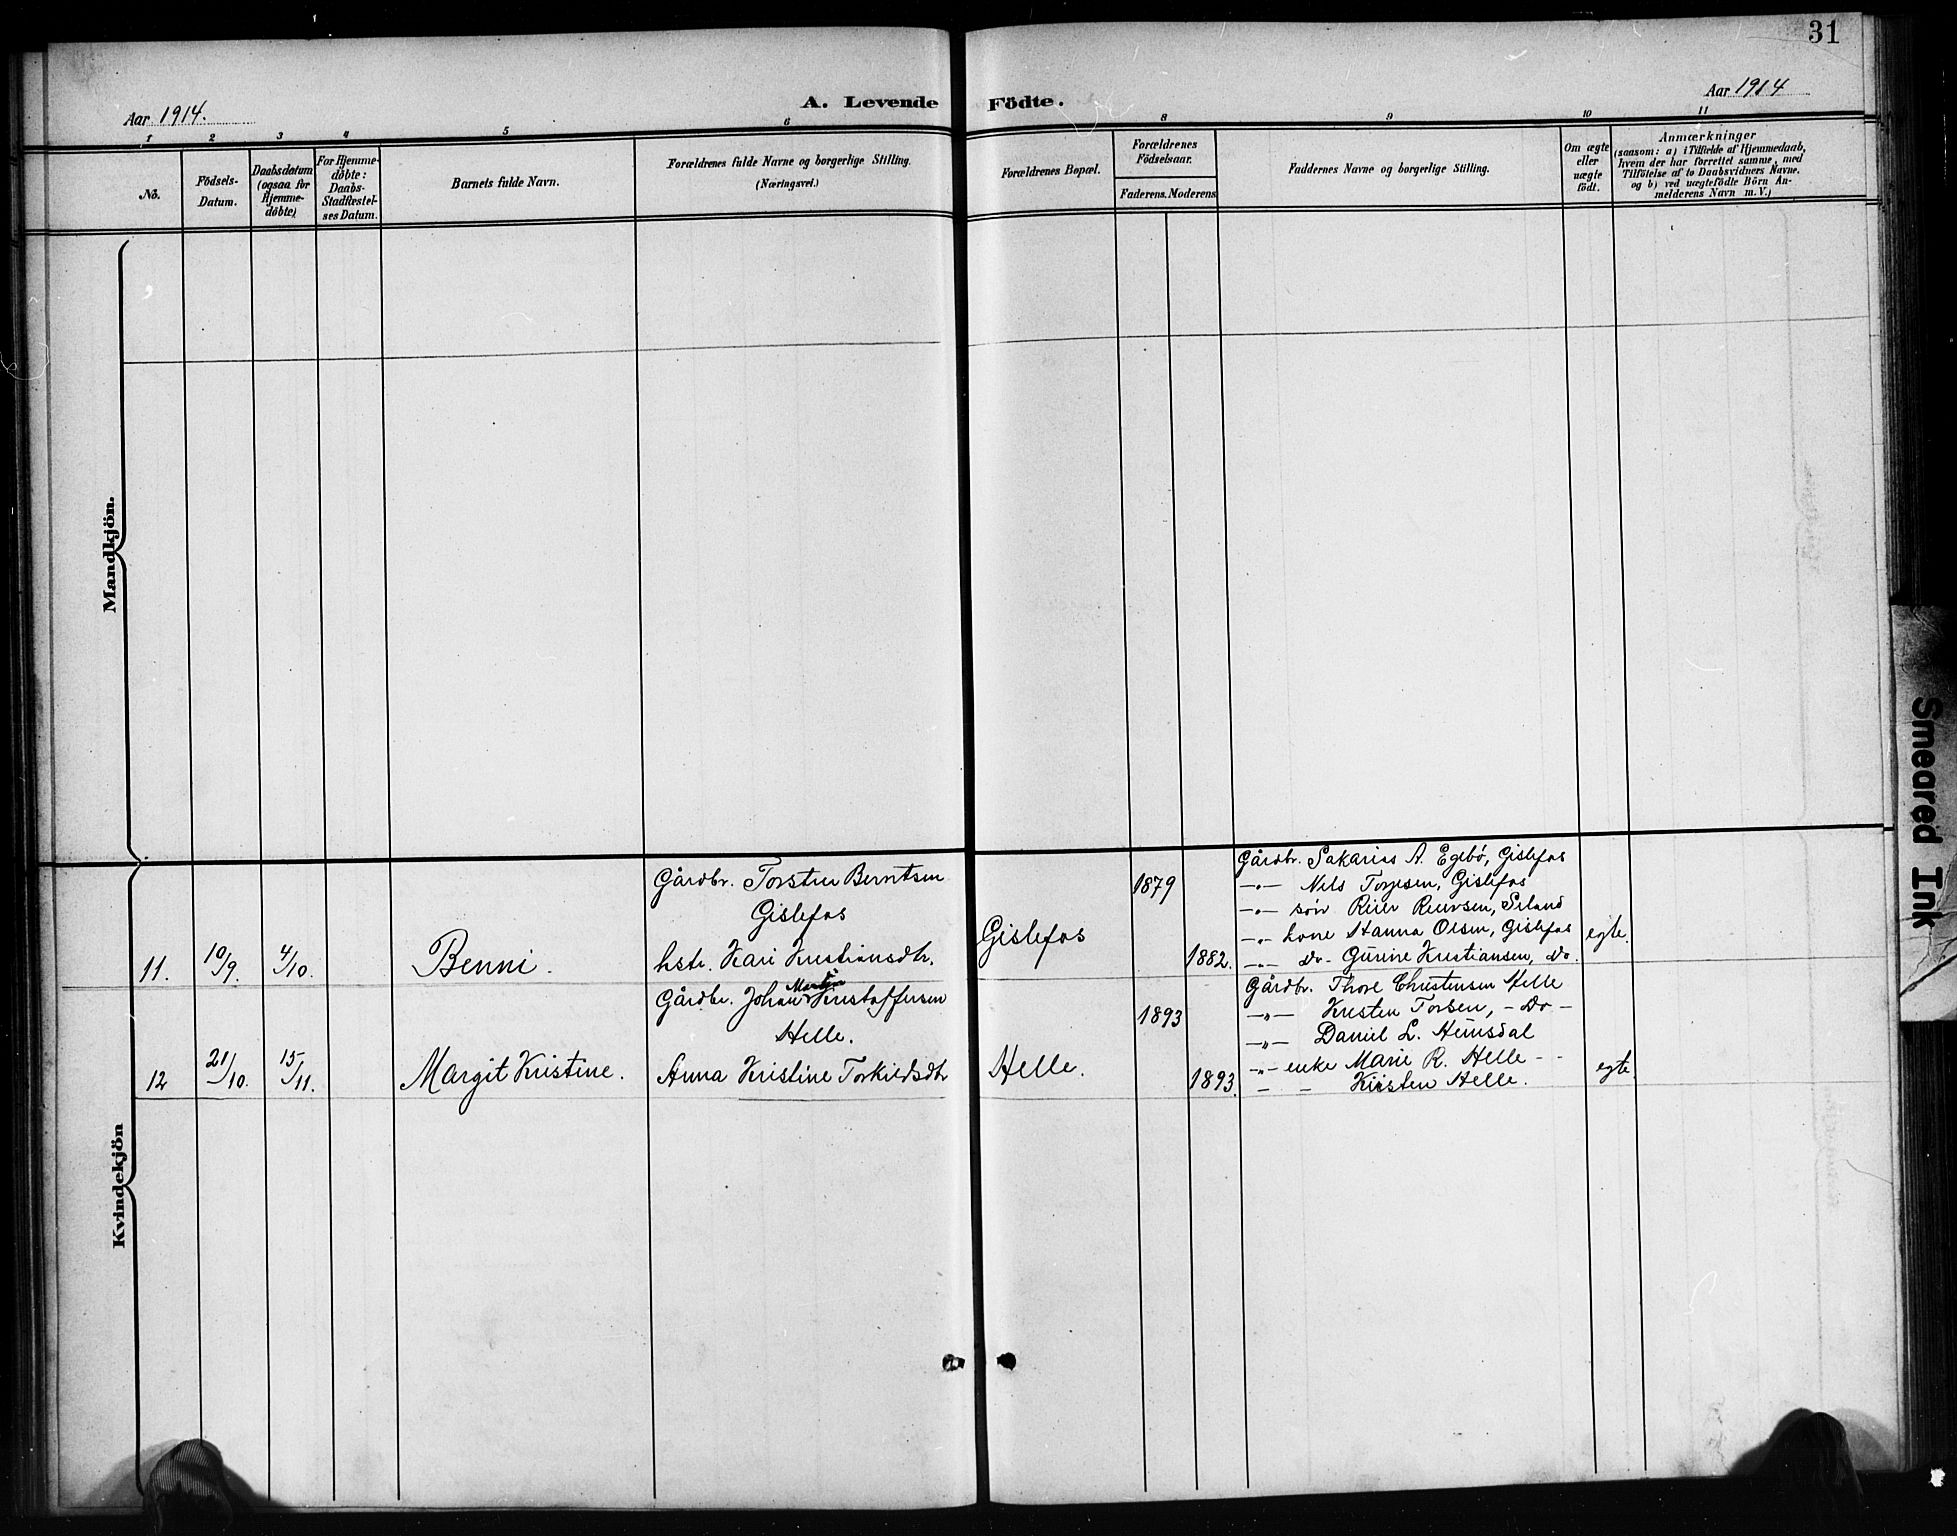 31
Aar 1914.
A. Levende Födte.
Aar 1914
1 2 3 4 5 6 8 9 10 11
No.
Födsels-
Datum.
Daabsdatum
(ogsaa for
Hjemme-
döbte)
For Hjemme-
döbte:
Daabs-
Stadfæstel-
ses Datum.
Barnets fulde Navn.
Forældrenes fulde Navne og borgerlige Stilling.
(Næringsvei.)
Forældrenes Bopæl.
Forældrenes
Födselsaar.
Faderens. Moderens
Faddernes Navne og borgerlige Stilling.
Om ægte
eller
uægte
födt.
Anmærkninger
(saasom: a) i Tilfælde af Hjemmedaab,
hvem der har forrettet samme, med
Tilföielse af to Daabsvidners Navne.
og b) ved uægtefödte Börn An-
melderens Navn m. V.)
Mandkjön.
Kvindekjön
11.
10/9.
4/10.
Benni.
Gårdbr. Torsten Berntsen
Gislefos
hstr. Kari Kristiansdtr.
Gislefos
1879
1882.
Gårdbr. Sakarias A. Egebö, Gislefos
—"— Nels Torjesen, Gislefos
—"— sön Reier Reiersen,
—"— kone Hanna Olsen, Gislefos
—"— Do- Gurine Kristiansen, Do.
egte.
12
21/10.
15/11.
Margit Kristine.
Gårdbr. Johan Kristoffersen
Helle.
Anna Kristine Torkildsdtr
Helle.
1893
1893.
Gårdbr. Thore Christensen Helle
—"— Kristen Torsen, - Do -
—"— Daniel L. Heimsdal
—"— enke Marie R. Helle - -
- - Kirsten Helle.
egte.
Smeared Ink